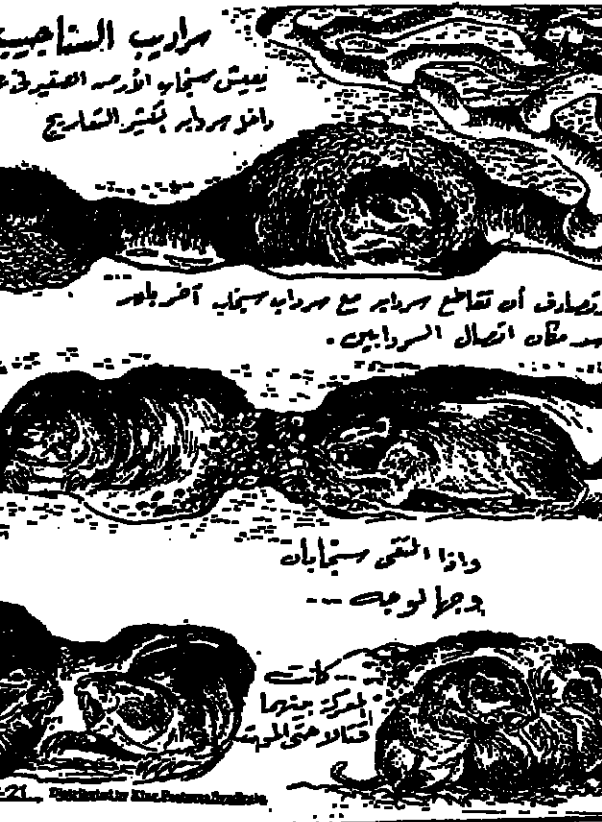 سراديب السناجيب
يعيش سنجاب الأرض الصغير في
داخل سرداب كثير التعاريج
تصادف أن تقاطع سرداب مع سرداب سنجاب آخر
مكان اتصال السردابين .
واذا التقى سنجابان
وجها لوجه --
-- كانت
المعركة بينهما
قتالا حتى الموت
21 Distributed by King Features Syndicate